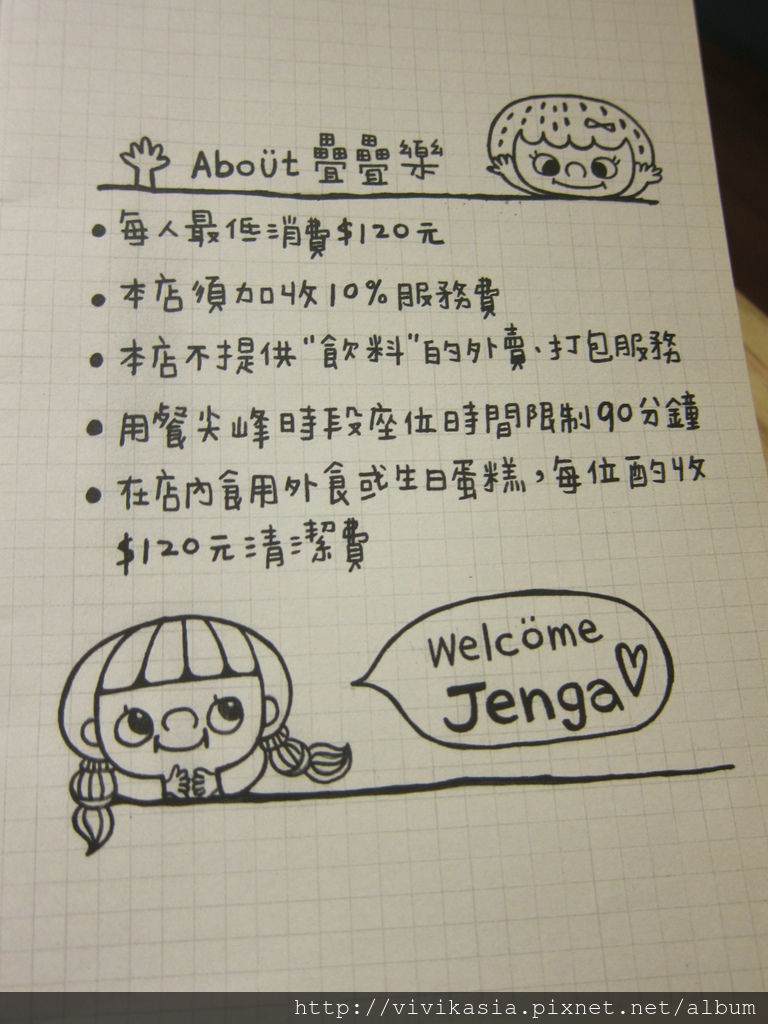 Aboüt 疊疊樂
• 每人最低消費$120元
• 本店須加收10%服務費
• 本店不提供"飲料"的外賣、打包服務
• 用餐尖峰時段座位時間限制90分鐘
• 在店內食用外食或生日蛋糕，每位酌收
$120元清潔費
Welcöme
Jenga
http://vivikasia.pixnet.net/album